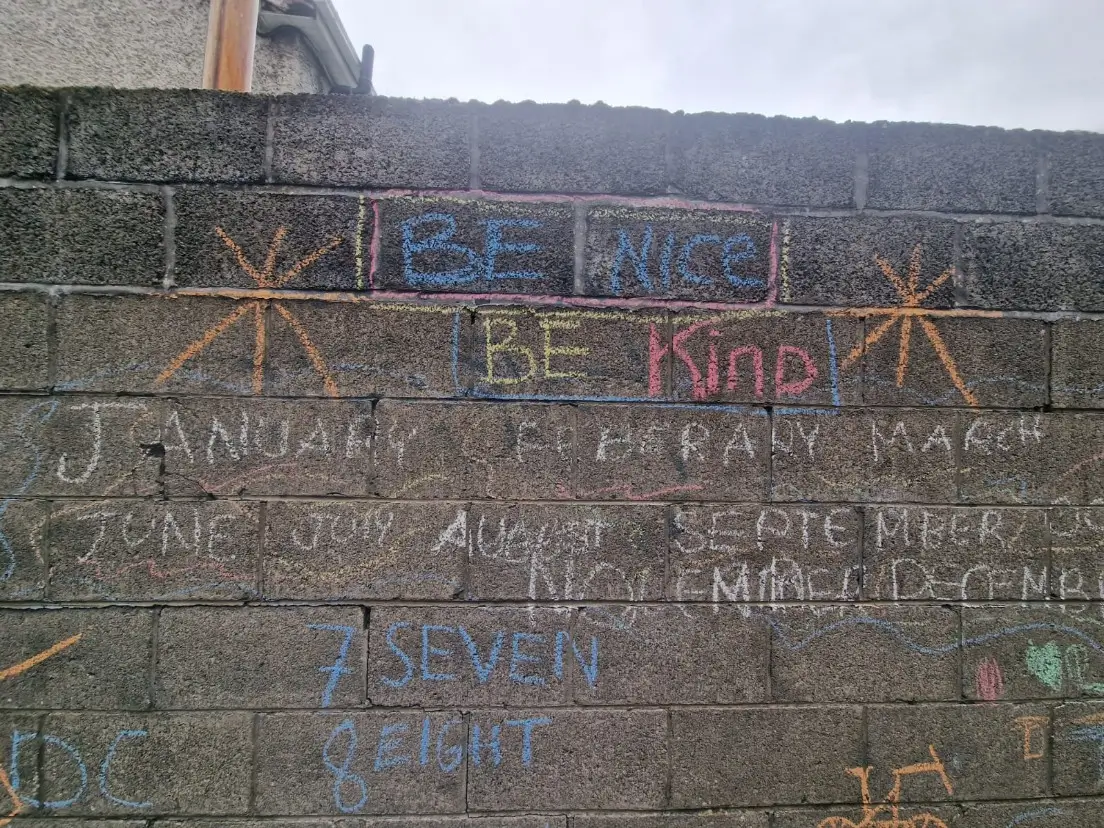 BE NICE
BE Kind
JANUARY FEBERARY MARCH
JUNE JULY AUGUST SEPTEMBER
NOVEMBER DECEMBE
7 SEVEN
DC 8 EIGHT